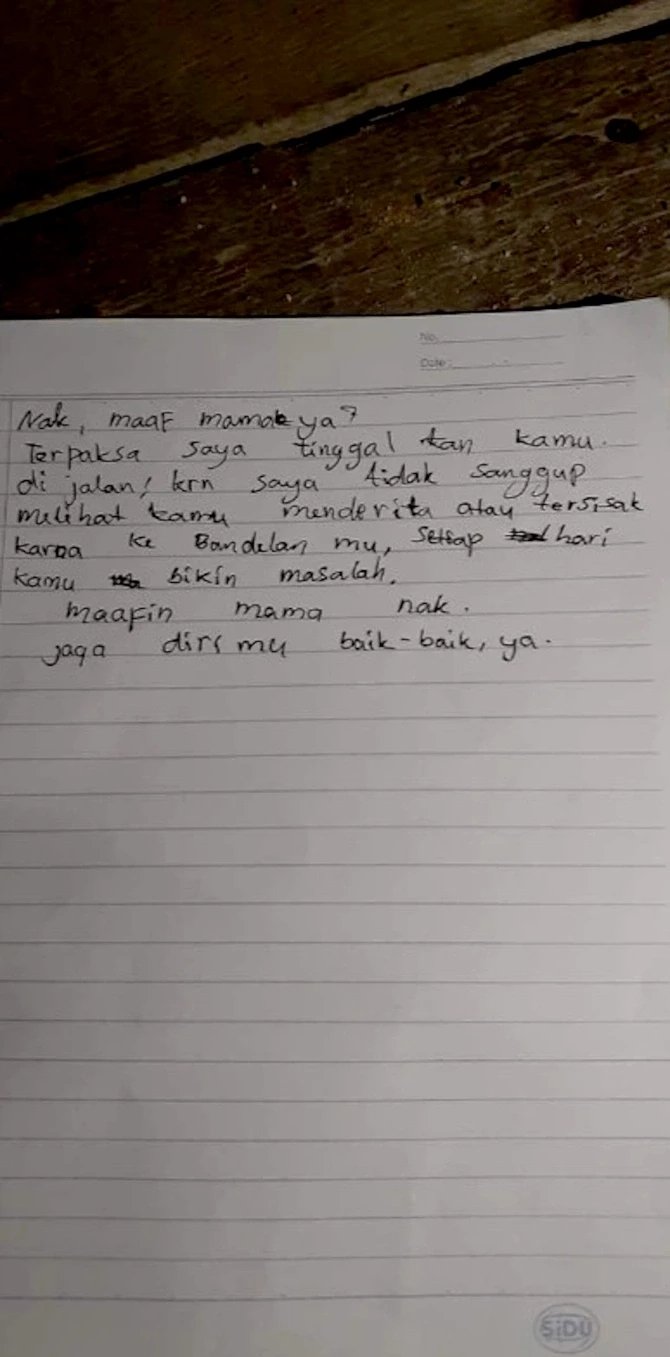 No.
Date:
Nak, maaf mamak ya?
Terpaksa saya tinggal kan kamu.
di jalan, krn saya tidak sanggup
melihat kamu menderita atau tersisak
karna ke Bandelan mu, setiap hari
kamu bikin masalah.
maafin mama nak.
jaga diri mu baik-baik, ya.
SiDU